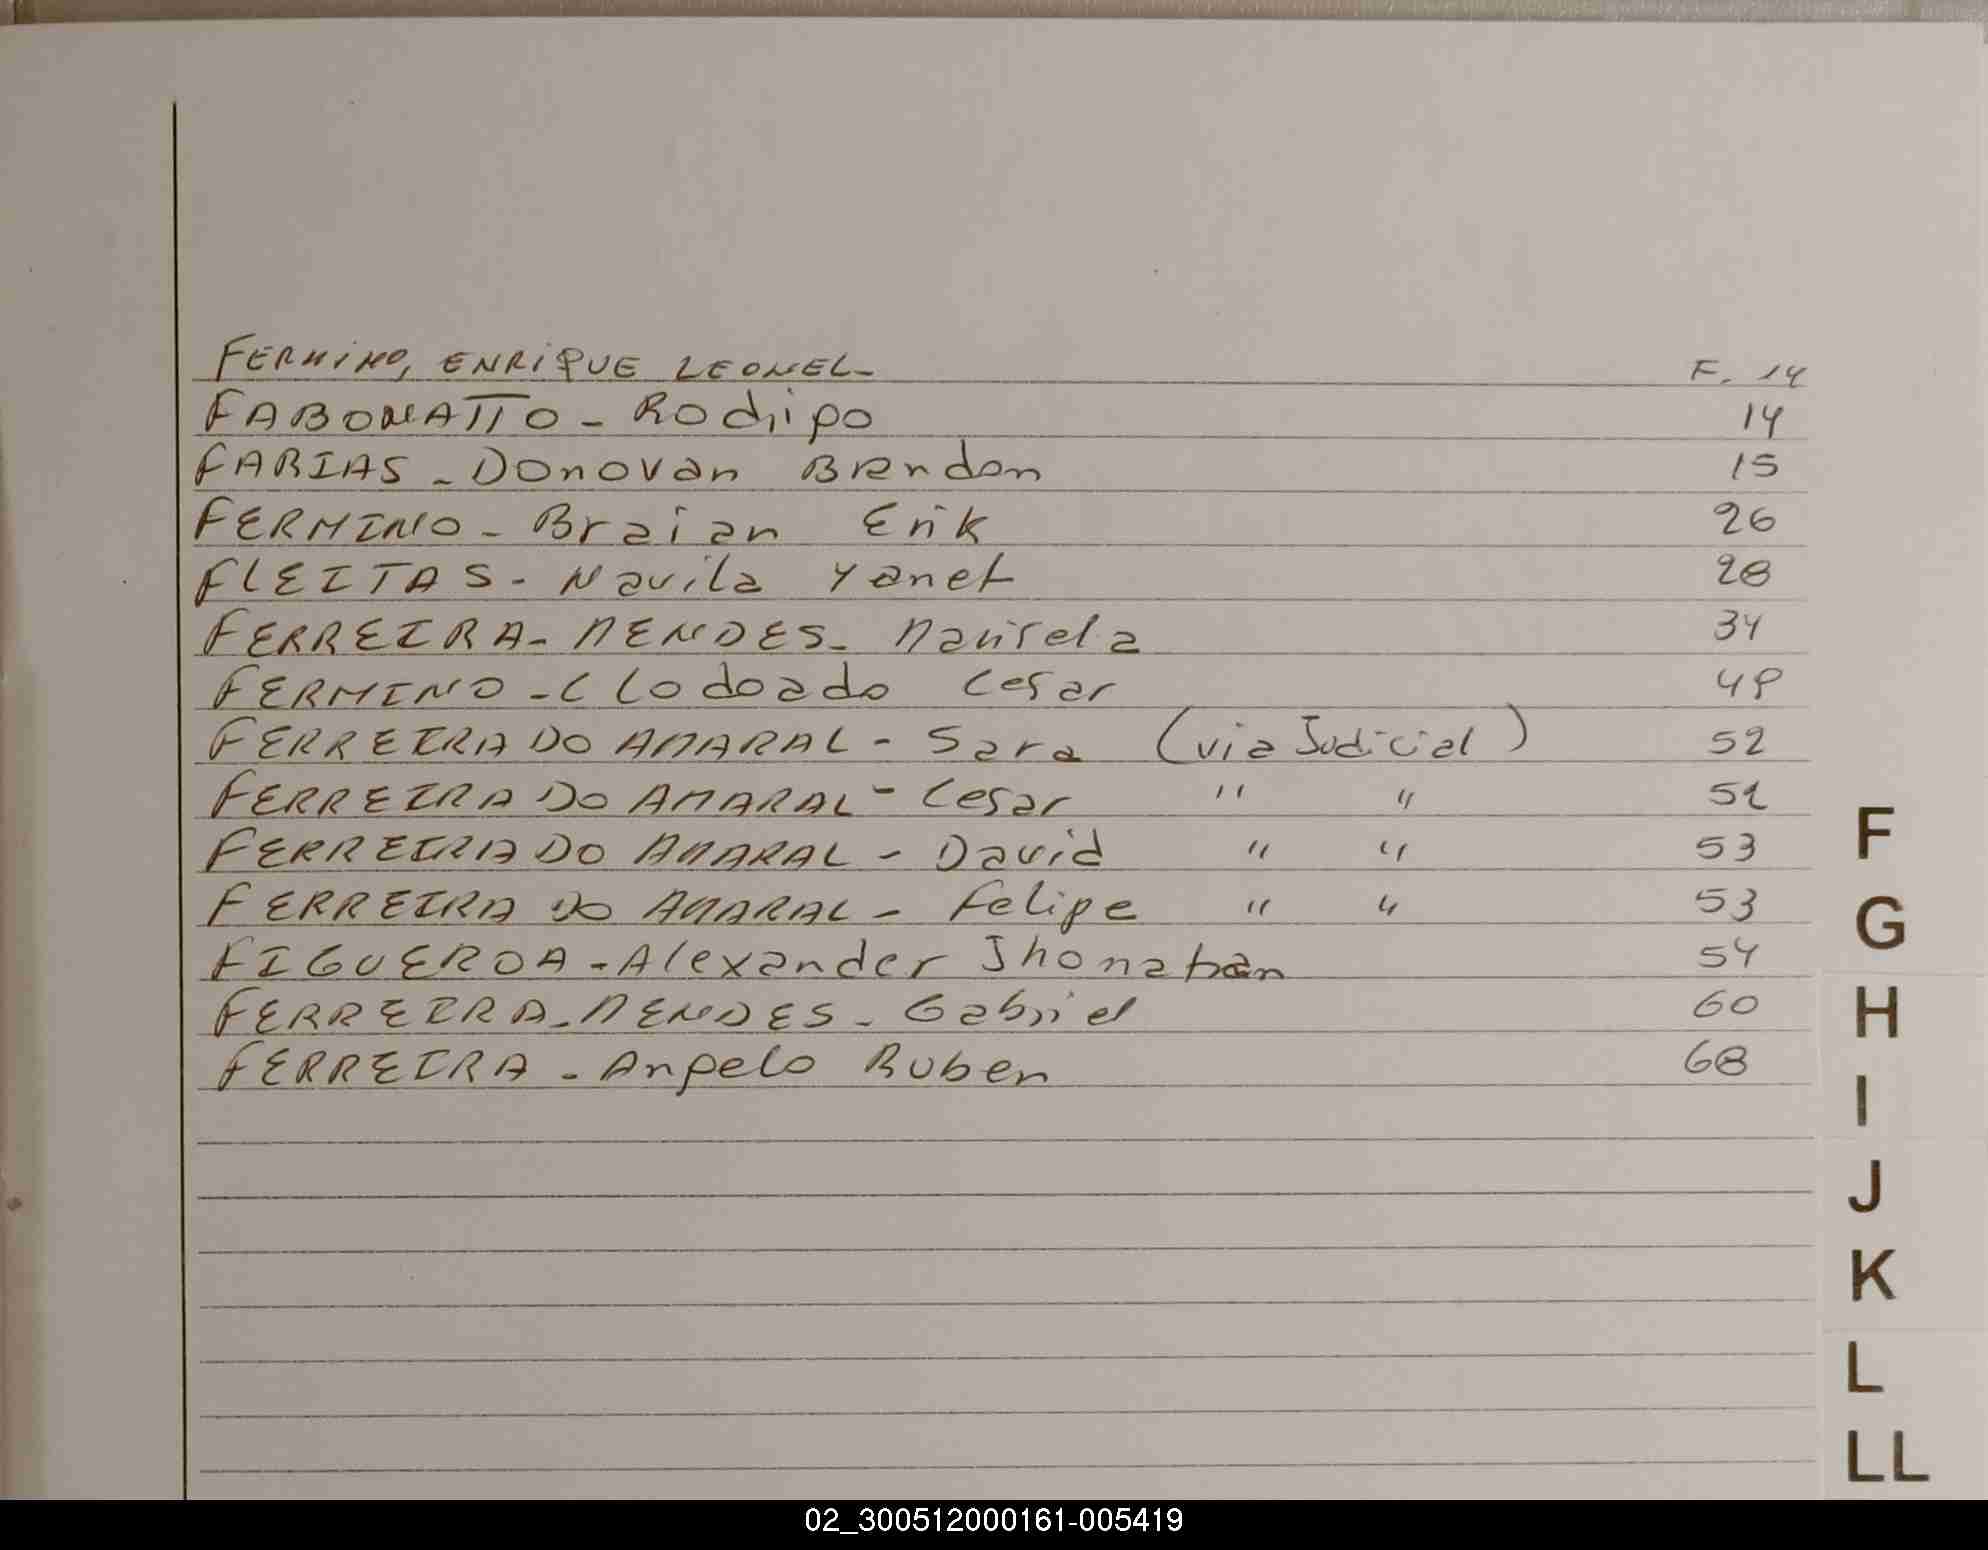 FERMINO, ENRIQUE LEONEL- F. 14
FABONATTO - Rodrigo 14
FARIAS - Donovan Brandon 15
FERMINO - Braian Erik 26
FLEITAS - Navila Yanet 28
FERREIRA - MENDES - Marisela 34
FERMINO - Clodoado Cesar 49
FERREIRA DO AMARAL - Sara (via Judicial) 52
FERREIRA DO AMARAL - Cesar " " 52
FERREIRA DO AMARAL - David " " 53
FERREIRA DO AMARAL - Felipe " " 53
FIGUEROA - Alexander Jhonatan 54
FERREIRA - MENDES - Gabriel 60
FERREIRA - Angelo Ruben 68
F
G
H
I
J
K
L
LL
02_300512000161-005419